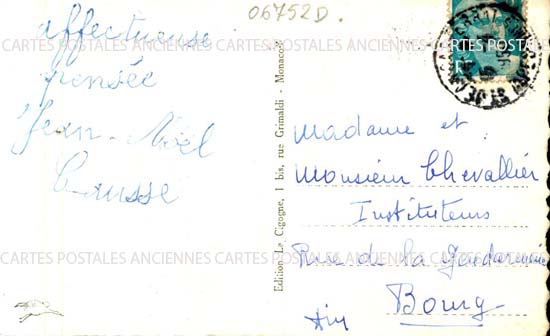 06752D.
affectueuse
pensée
Jean-Noël
Causse
Edition La Cigogne, 1 bis, rue Grimaldi - Monaco
Madame et
Monsieur Chevallier
Instituteurs
Rue de la Gendarmerie
Bourg
Ain
CARTES POSTALES ANCIENNES CARTES POSTALES ANCIENNES CARTES POSTALES
CARTES POSTALES ANCIENNES CARTES POSTALES ANCIENNES CARTES POSTALES
CARTES POSTALES ANCIENNES CARTES POSTALES ANCIENNES CARTES POSTALES